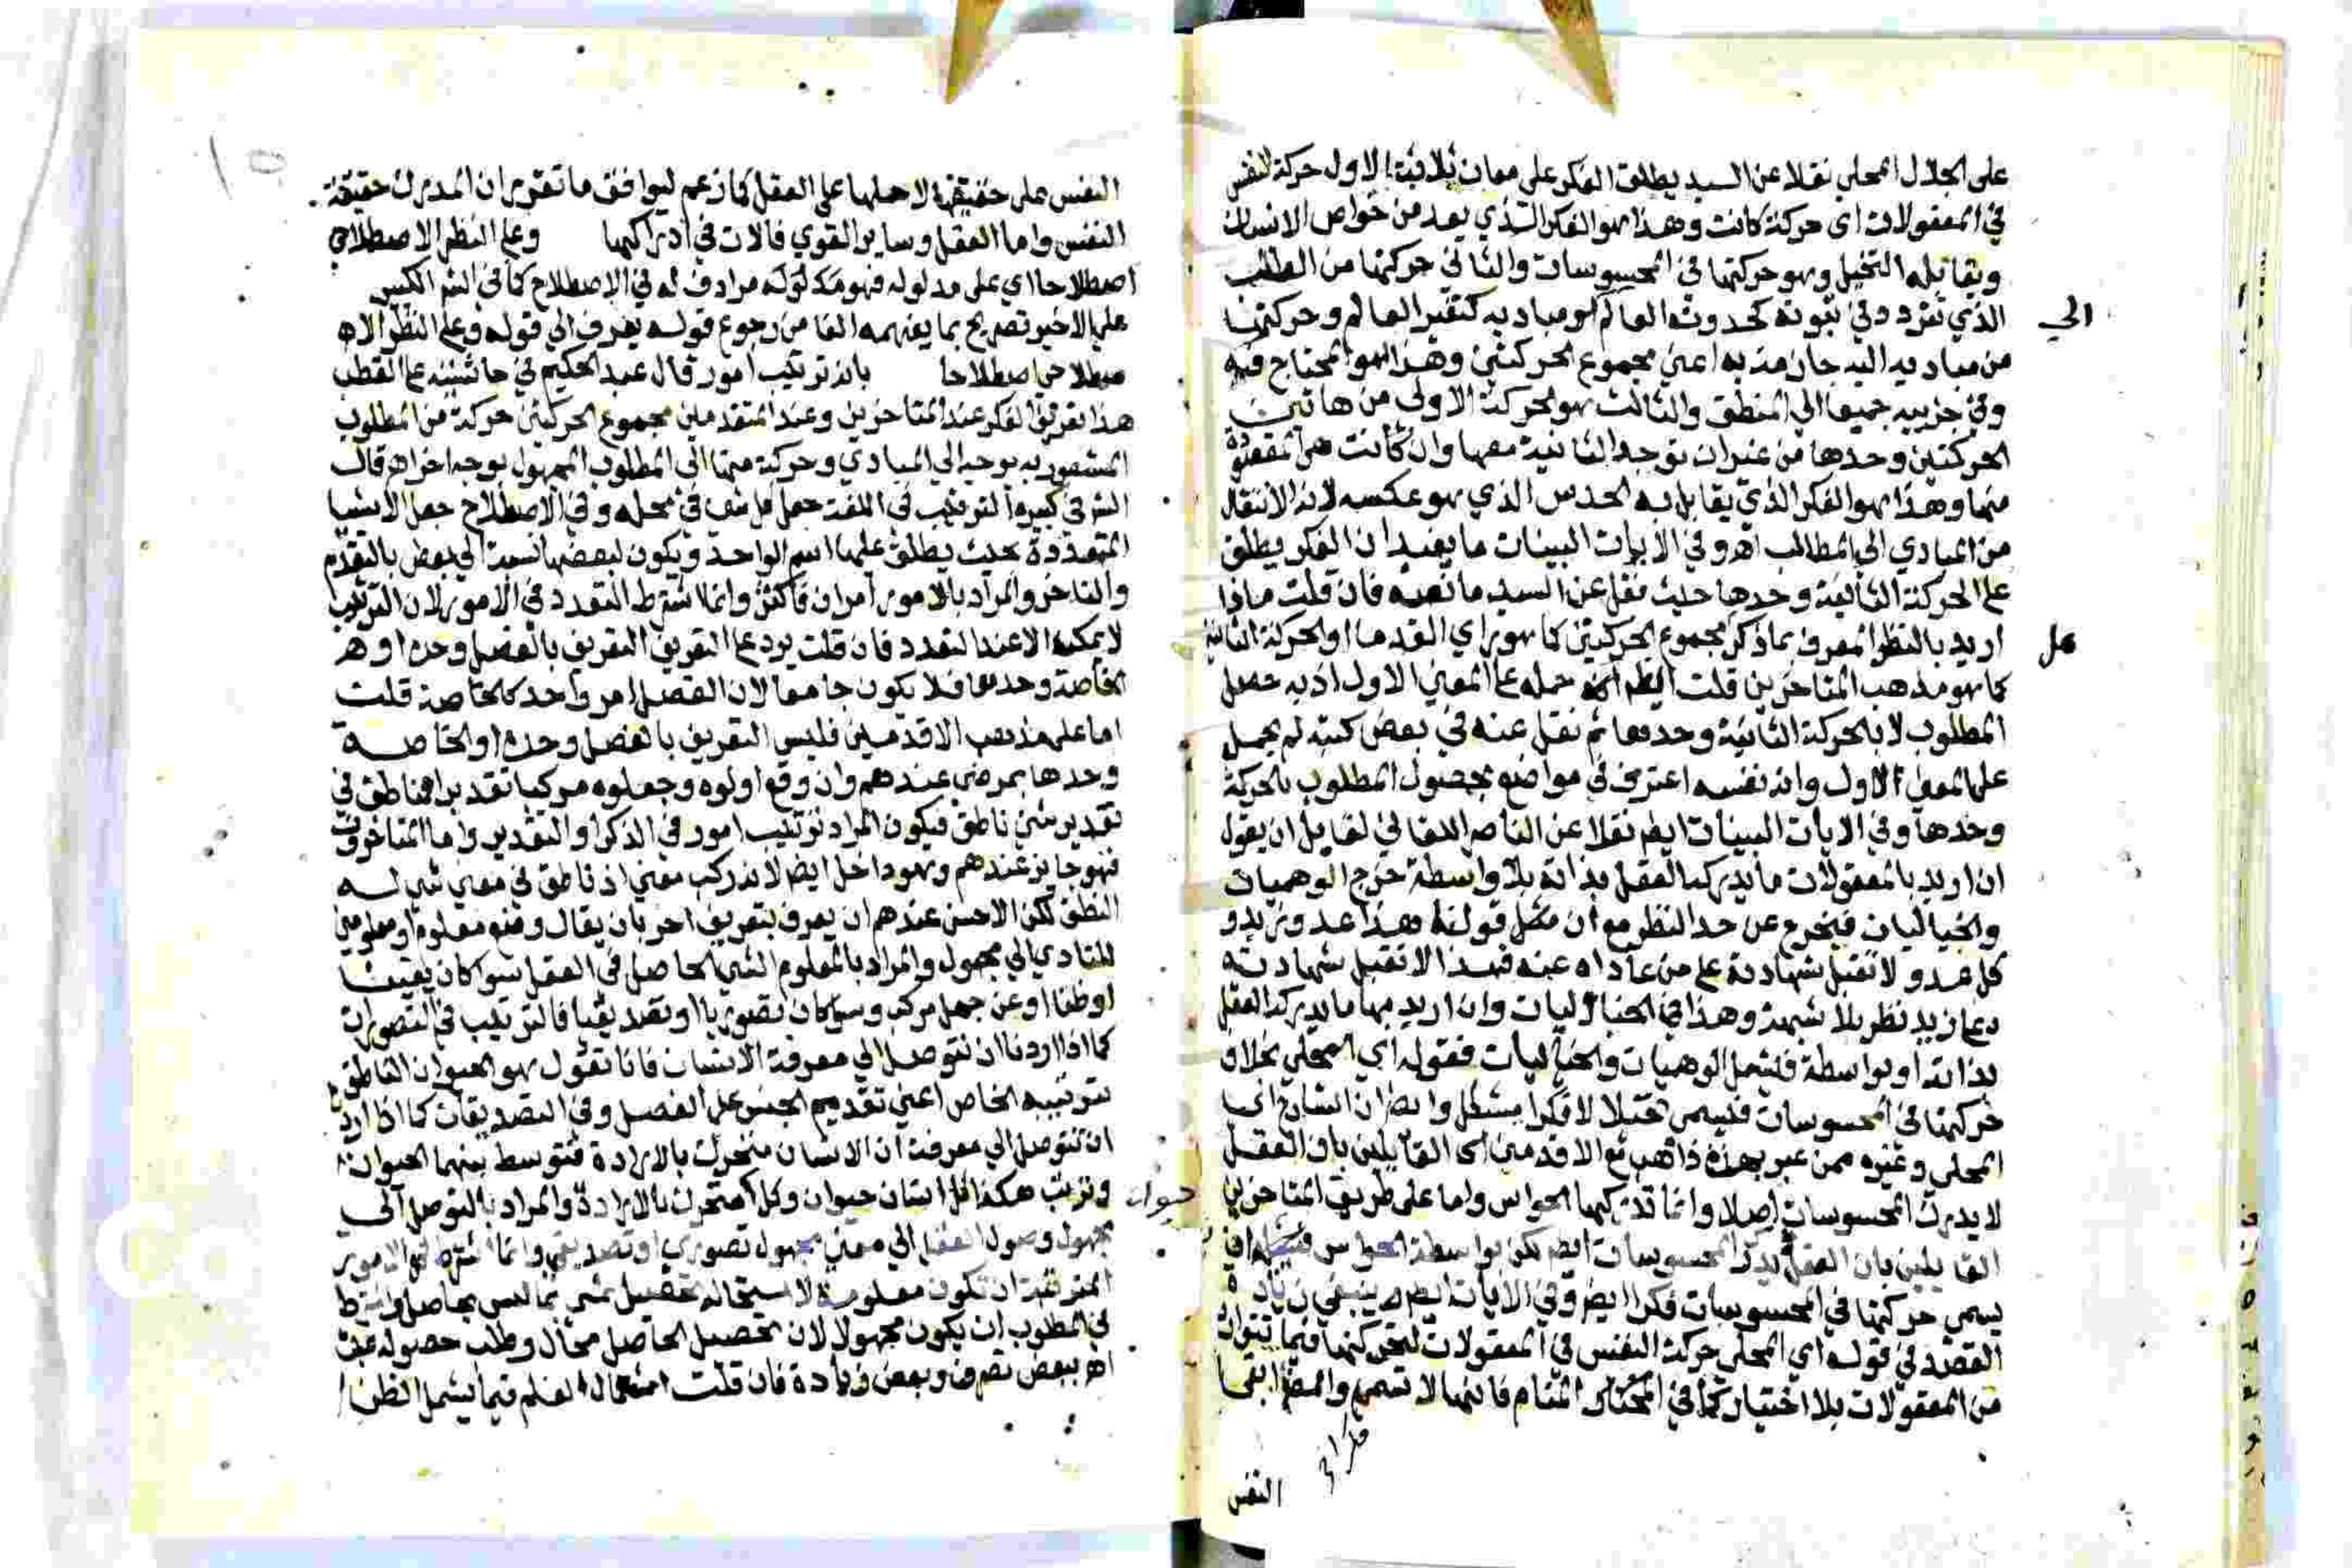 على الجلال المحلي نقلا عن السيد يطلق الفكر على معان ثلاثة الاول حركة النفس
في المعقولات اى حركة كانت وهذا هو الفكر الذي يعد من خواص الانسان
ويقابله التخيل وهو حركتها في المحسوسات والثاني حركتها من المطلب
الذي تتردد في ثبوته كحدوث العالم لو مباديه كتغير العالم وحركتها
الي
من مباديه اليه جازمة به اعني مجموع الحركتين وهذا هو المحتاج فيه
وفي جزييه جميعا الي المنطق والثالث هو الحركة الاولى من هاتين
الحركتين وحدها من غير ان توجد الثانية معها وان كانت هي المقصودة
منها وهذا هو الفكر الذي يقابل به الحدس الذي هو عكسه لانه الانتقال
من المبادي الي المطالب اهـ وفي الايات البينات ما يفيد ان الفكر يطلق
على الحركة الثانية وحدها حيث نقل عن السيد ما نصه فان قلت ماذا
اريد بالنظر المعرف بما ذكر مجموع الحركتين كما هو راي القدما او الحركة الثانية
كما هو مذهب المتاخرين قلت حمله على المعني الاول اذ به حصل
المطلوب لا بالحركة الثانية وحدها ثم نقل عنه في بعض كتبه لم يحمل
على المعنى الاول وانه نفسه اعترف في مواضع بحصول المطلوب بالحركة
وحدها وفي الايات البينات ايضا نقلا عن الناصر اللقاني لقايل ان يقول
ان اريد بالمعقولات ما يدركه العقل بذاته بلا واسطة خرج الوهميات
والخياليات فيخرج عن حد النظر مع ان مثل قولنا هذا عدو زيد و
كل عدو لا تقبل شهادته على من عاداه عينه فهذا لا تقبل شهادته
على زيد نظر بلا شبهة وهذا في الخياليات وان اريد بها ما يدركه العقل
بذاته او بواسطة فليشمل الوهميات والخياليات فقوله اي المحلي بخلاف
حركتها في المحسوسات فليسمى تخيلا لا فكرا مشكل وايضا ان الشارح اي
المحلي وغيره ممن عبر بهذه ذاهب مع الاقدمين اي القايلين بان العقل
لا يدرك المحسوسات اصلا وانما تدركها الحواس واما على طريق المتاخرين
القايلين بان العقل يدرك المحسوسات ايضا لكن بواسطة الحواس
يسمى حركتها في المحسوسات فكرا ايضا وفي الايات ايضا ينبغي زيادة
القصد في قوله اي المحلي حركة النفس في المعقولات لتخرج حركتها فيما يتوارد
من المعقولات بلا اختيار كما في المنام فانها لا تسمى
فكرا
النفس
النفس على حقيقتها لا حملها على العقل كما زعم ليوافق ما تقرر ان المدرك حقيقة
النفس واما العقل وساير القوي فالات في ادراكها وعلى النظر الاصطلاحي
اصطلاحا اي على مدلوله فهو مدلوله مرادف له في الاصطلاح كما في الشر الكبير
على الاخير تصريح بما يفهمه الفا من رجوع قوله يعرف الي قوله وعلى النظر الاص
صطلاحي اصطلاحا بانه ترتيب امور قال عبد الحكيم في حاشيته على القطب
هذا تعريف الفكر عند المتاخرين وعند المتقدمين مجموع الحركتين حركة من المطلوب
المشعور به بوجه الي المبادي وحركة منها الي المطلوب المجهول بوجه اخر اهـ قال
الشر في كبيره الترتيب في اللغة جعل كل شي في محله وفي الاصطلاح جعل الاشيا
المتعددة بحيث يطلق عليها اسم الواحد ويكون لبعضها نسبة الي بعض بالتقدم
والتاخر والمراد بالامور امران فاكثر وانما اشترط التعدد في الامور لان الترتيب
لا يمكن الا عند التعدد فان قلت يرد على التعريف التعريف بالفصل وحده او هـ
الخاصة وحدها فلا يكون جامعا لان الفصل امر واحد كالخاصة قلت
اما على مذهب الاقدمين فليس التعريف بالفصل وحده او الخاصة
وحدها بمرضي عندهم وان وقع اولوه وجعلوه مركبا تقديرا فناطق في
تقدير شي ناطق فيكون المراد ترتيب امور في الذكر او التقدير واما المتاخرون
فهو جايز عندهم وهو داخل ايضا لانه مركب معني اذ ناطق في معني شي له
النطق لكن الاحسن عندهم ان يعرف بتعريف اخر بان يقال وضع معلوم او معلومين
للتادي الي مجهول والمراد بالمعلوم الشي الحاصل في العقل سوا كان يقينا
او ظنا او عن جهل مركب وسوا كان تصوريا او تصديقيا فالترتيب في التصورات
كما اذا اردنا ان نتوصل الي معرفة الانسان فانا نقول هو الحيوان الناطق
بترتيبه الخاص اعني تقديم الجنس على الفصل وفي التصديقات كما اذا اردنا
ان نتوصل الي معرفة ان الانسان متحرك بالارادة فنوسط بينهما الحيوان
ونرتب هكذا كل انسان حيوان وكل متحرك بالارادة والمراد بالتوصل الي
حيوان
مجهول وصول العقل الي معني مجهول تصوري او تصديقي وانما اشترط في الامور
المترتبة ان تكون معلومة لاستحالة تحصيل شي مما ليس بحاصل واشترط
في المطلوب ان يكون مجهولا لان تحصيل الحاصل محال وطلب حصوله عبث
اهـ ببعض تصرف وبعض زيادة فان قلت استعمال العلم فيما يشمل الظن